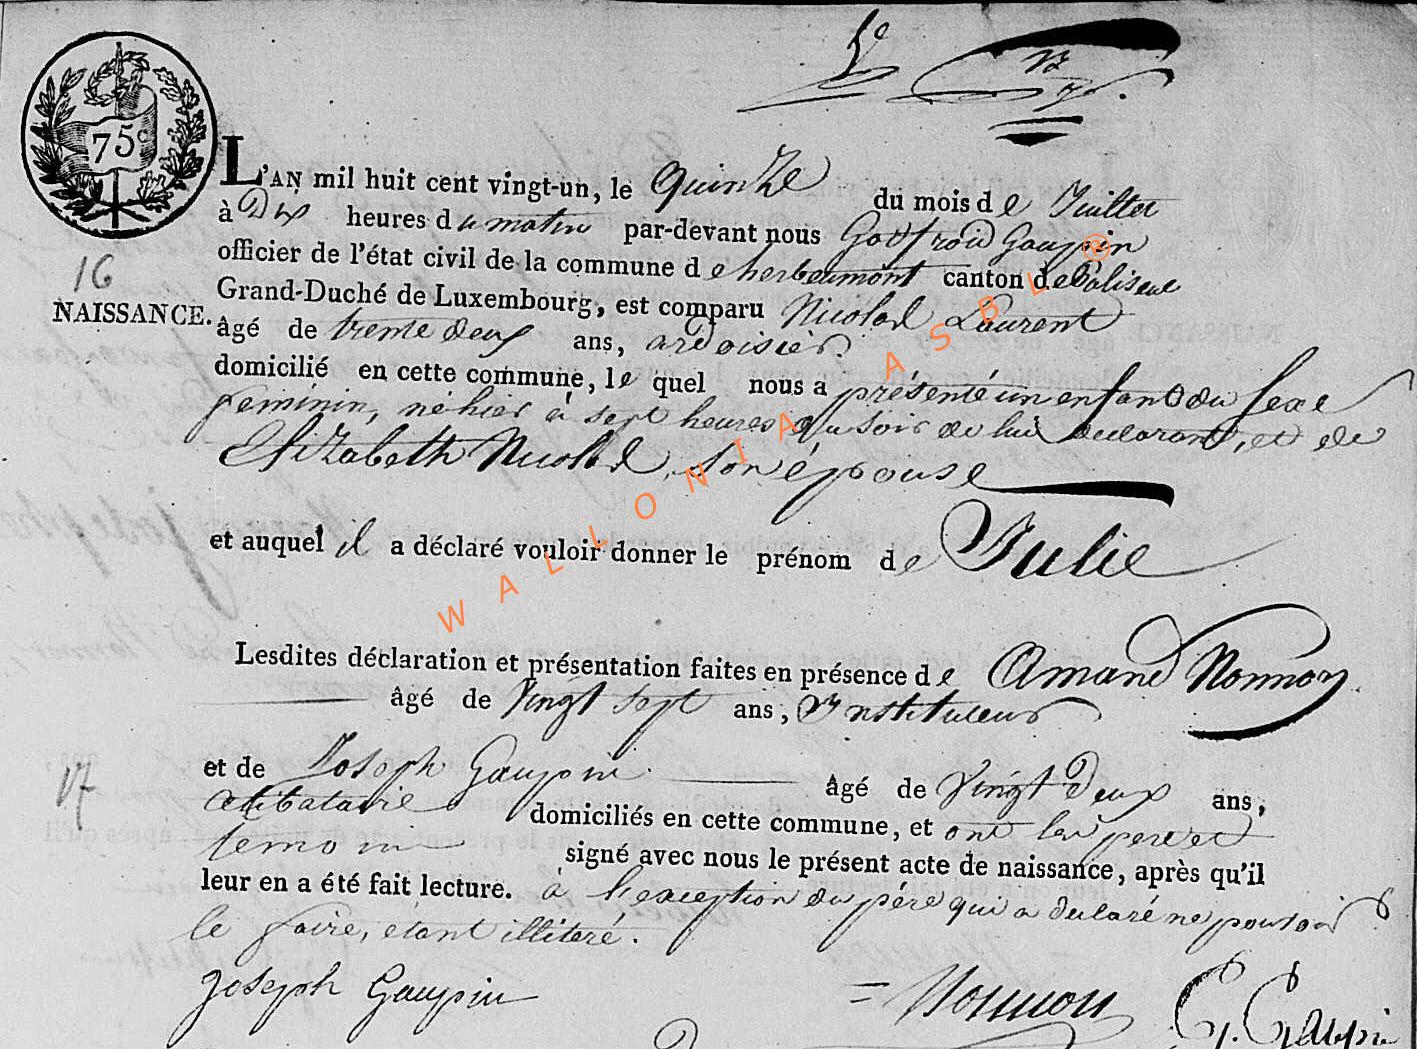 75c
L'AN mil huit cent vingt-un, le Quinze du mois de Juillet
à Dix heures du matin par-devant nous Godfroid Gaupin
officier de l'état civil de la commune de herbeumont canton de Paliseul
16
Grand-Duché de Luxembourg, est comparu Nicolas Laurent
NAISSANCE.
âgé de trente deux ans, ardoisier.
domicilié en cette commune, le quel nous a présenté un enfant du sexe
feminin, né hier à sept heures du soir de lui declarant, et de
Elizabeth Nicolas, son épouse
et auquel il a déclaré vouloir donner le prénom de Julie
Lesdites déclaration et présentation faites en présence de Amand Nonnon
âgé de Vingt sept ans, Instituteur
et de Joseph Gaupin âgé de Vingt Deux ans,
17
celibataire domiciliés en cette commune, et ont les pere et
temoin signé avec nous le présent acte de naissance, après qu'il
leur en a été fait lecture. à l'exception du père qui a declaré ne pouvoir
le faire, étant illiteré.
Joseph Gaupin Nonnon G. Gaupin
WALLONIA ASBL ®